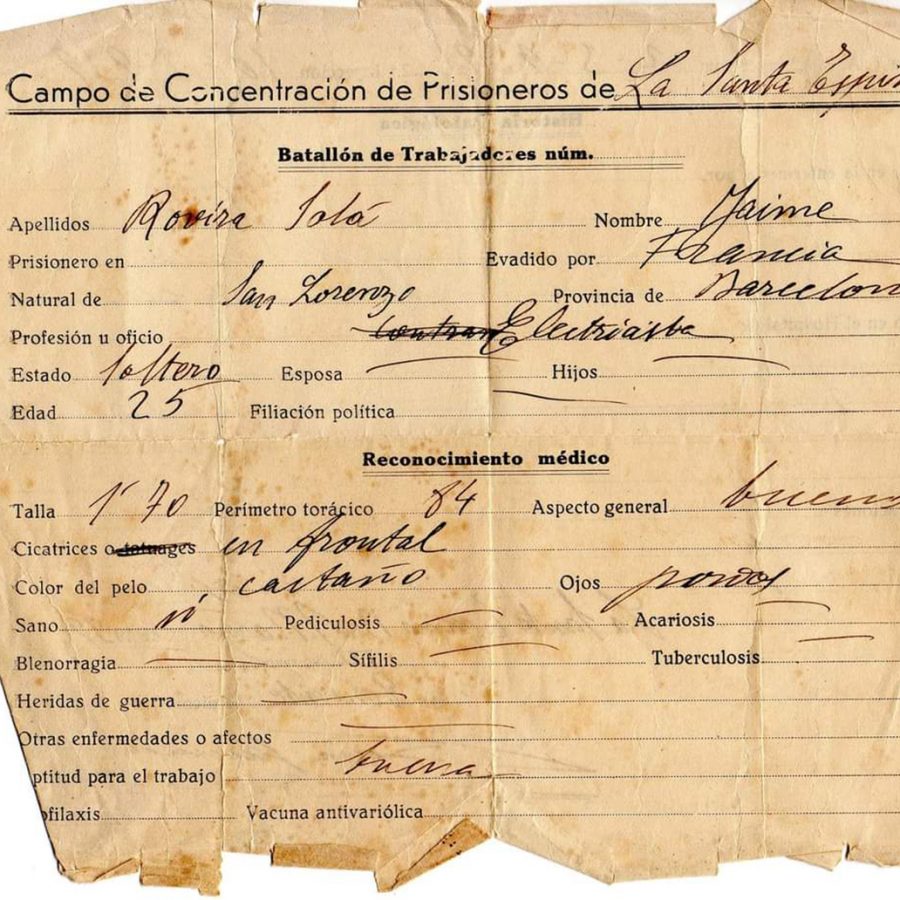 Campo de Concentración de Prisioneros de La Santa Espin
Batallón de Trabajadores núm.
Apellidos Rovira Solá Nombre Jaime
Prisionero en Evadido por Francia
Natural de San Lorenzo Provincia de Barcelon
Profesión u oficio Electricista
Estado soltero Esposa Hijos
Edad 25 Filiación política
Reconocimiento médico
Talla 1'70 Perímetro torácico 84 Aspecto general bueno
Cicatrices o tatuages en frontal
Color del pelo castaño Ojos pardos
Sano sí Pediculosis Acariosis
Blenorragia Sífilis Tuberculosis
Heridas de guerra
Otras enfermedades o afectos
ptitud para el trabajo buena
ofilaxis Vacuna antivariólica